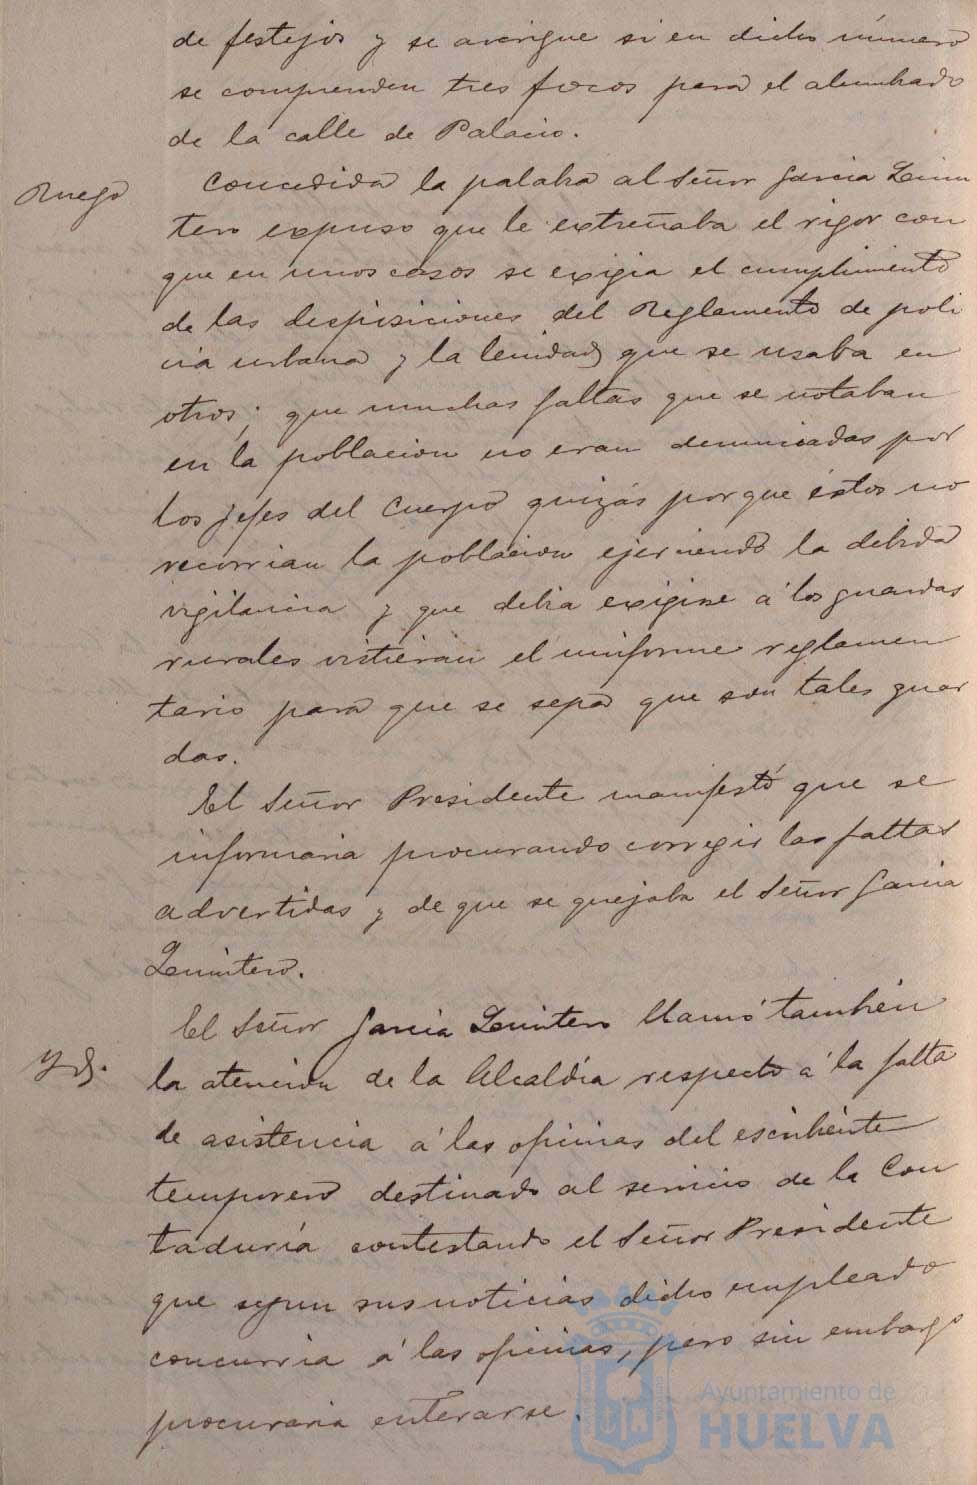 de festejos y se averigue si en dicho número
se comprenden tres focos para el alumbrado
de la calle de Palacio.
Ruego
Concedida la palabra al Señor Garcia Quin
tero expuso que le extrañaba el rigor con
que en unos casos se exigia el cumplimiento
de las disposiciones del Reglamento de poli
cia urbana y la lenidad que se usaba en
otros; que muchas faltas que se notaban
en la poblacion no eran denunciadas por
los jefes del Cuerpo quizás porque éstos no
recorrian la poblacion ejerciendo la debida
vigilancia y que debia exigirse á los guardas
rurales vistieran el uniforme reglamen
tario para que se sepa que son tales guar
das.
El Señor Presidente manifestó que se
informaria procurando corregir las faltas
advertidas y de que se quejaba el Señor Garcia
Quintero.
Yd.
El Señor Garcia Quintero llamó también
la atencion de la Alcaldía respecto á la falta
de asistencia á las oficinas del escribiente
temporero destinado al servicio de la Con
taduría contestando el Señor Presidente
que segun sus noticias dicho empleado
concurria á las oficinas, pero sin embargo
procuraria enterarse.
Ayuntamiento de
HUELVA